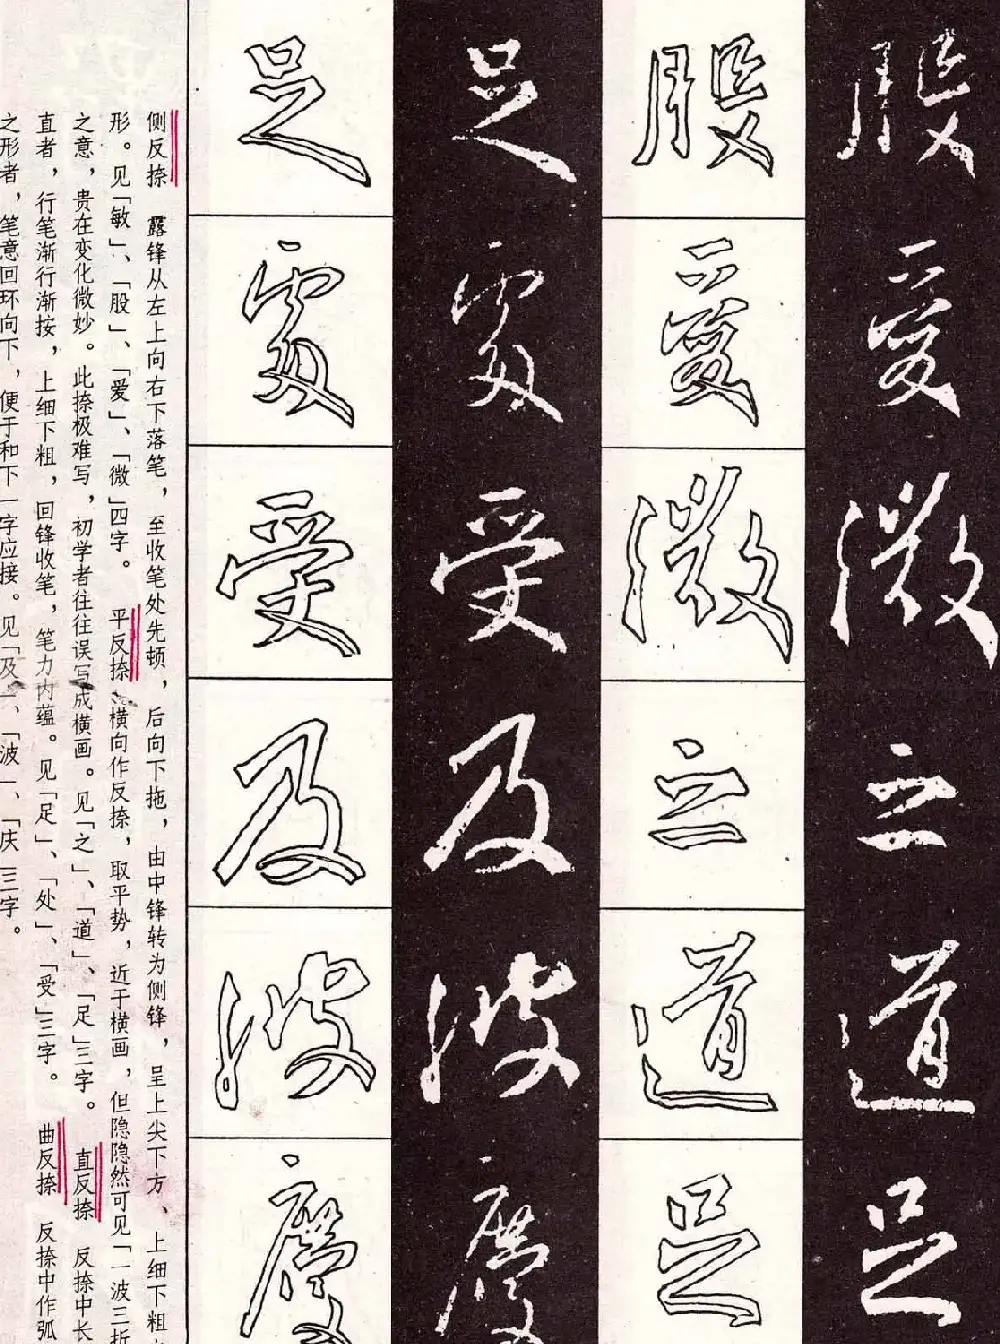 股愛微之道足
股愛微之道足
足處受及波慶
足處受及波慶
侧反捺 露锋从左上向右下落笔，至收笔处先顿，后向下拖，由中锋转为侧锋，呈上尖下方、上细下粗
形。见「敏」、「股」、「爱」、「微」四字。 平反捺 横向作反捺，取平势，近于横画，但隐隐然可见「一波三折
之意，贵在变化微妙。此捺极难写，初学者往往误写成横画。见「之」、「道」、「足」三字。 直反捺 反捺中长
直者，行笔渐行渐按，上细下粗，回锋收笔，笔力内蕴。见「足」、「处」、「受」三字。 曲反捺 反捺中作弧
之形者，笔意回环向下，便于和下一字应接。见「及」、「波」、「庆」三字。